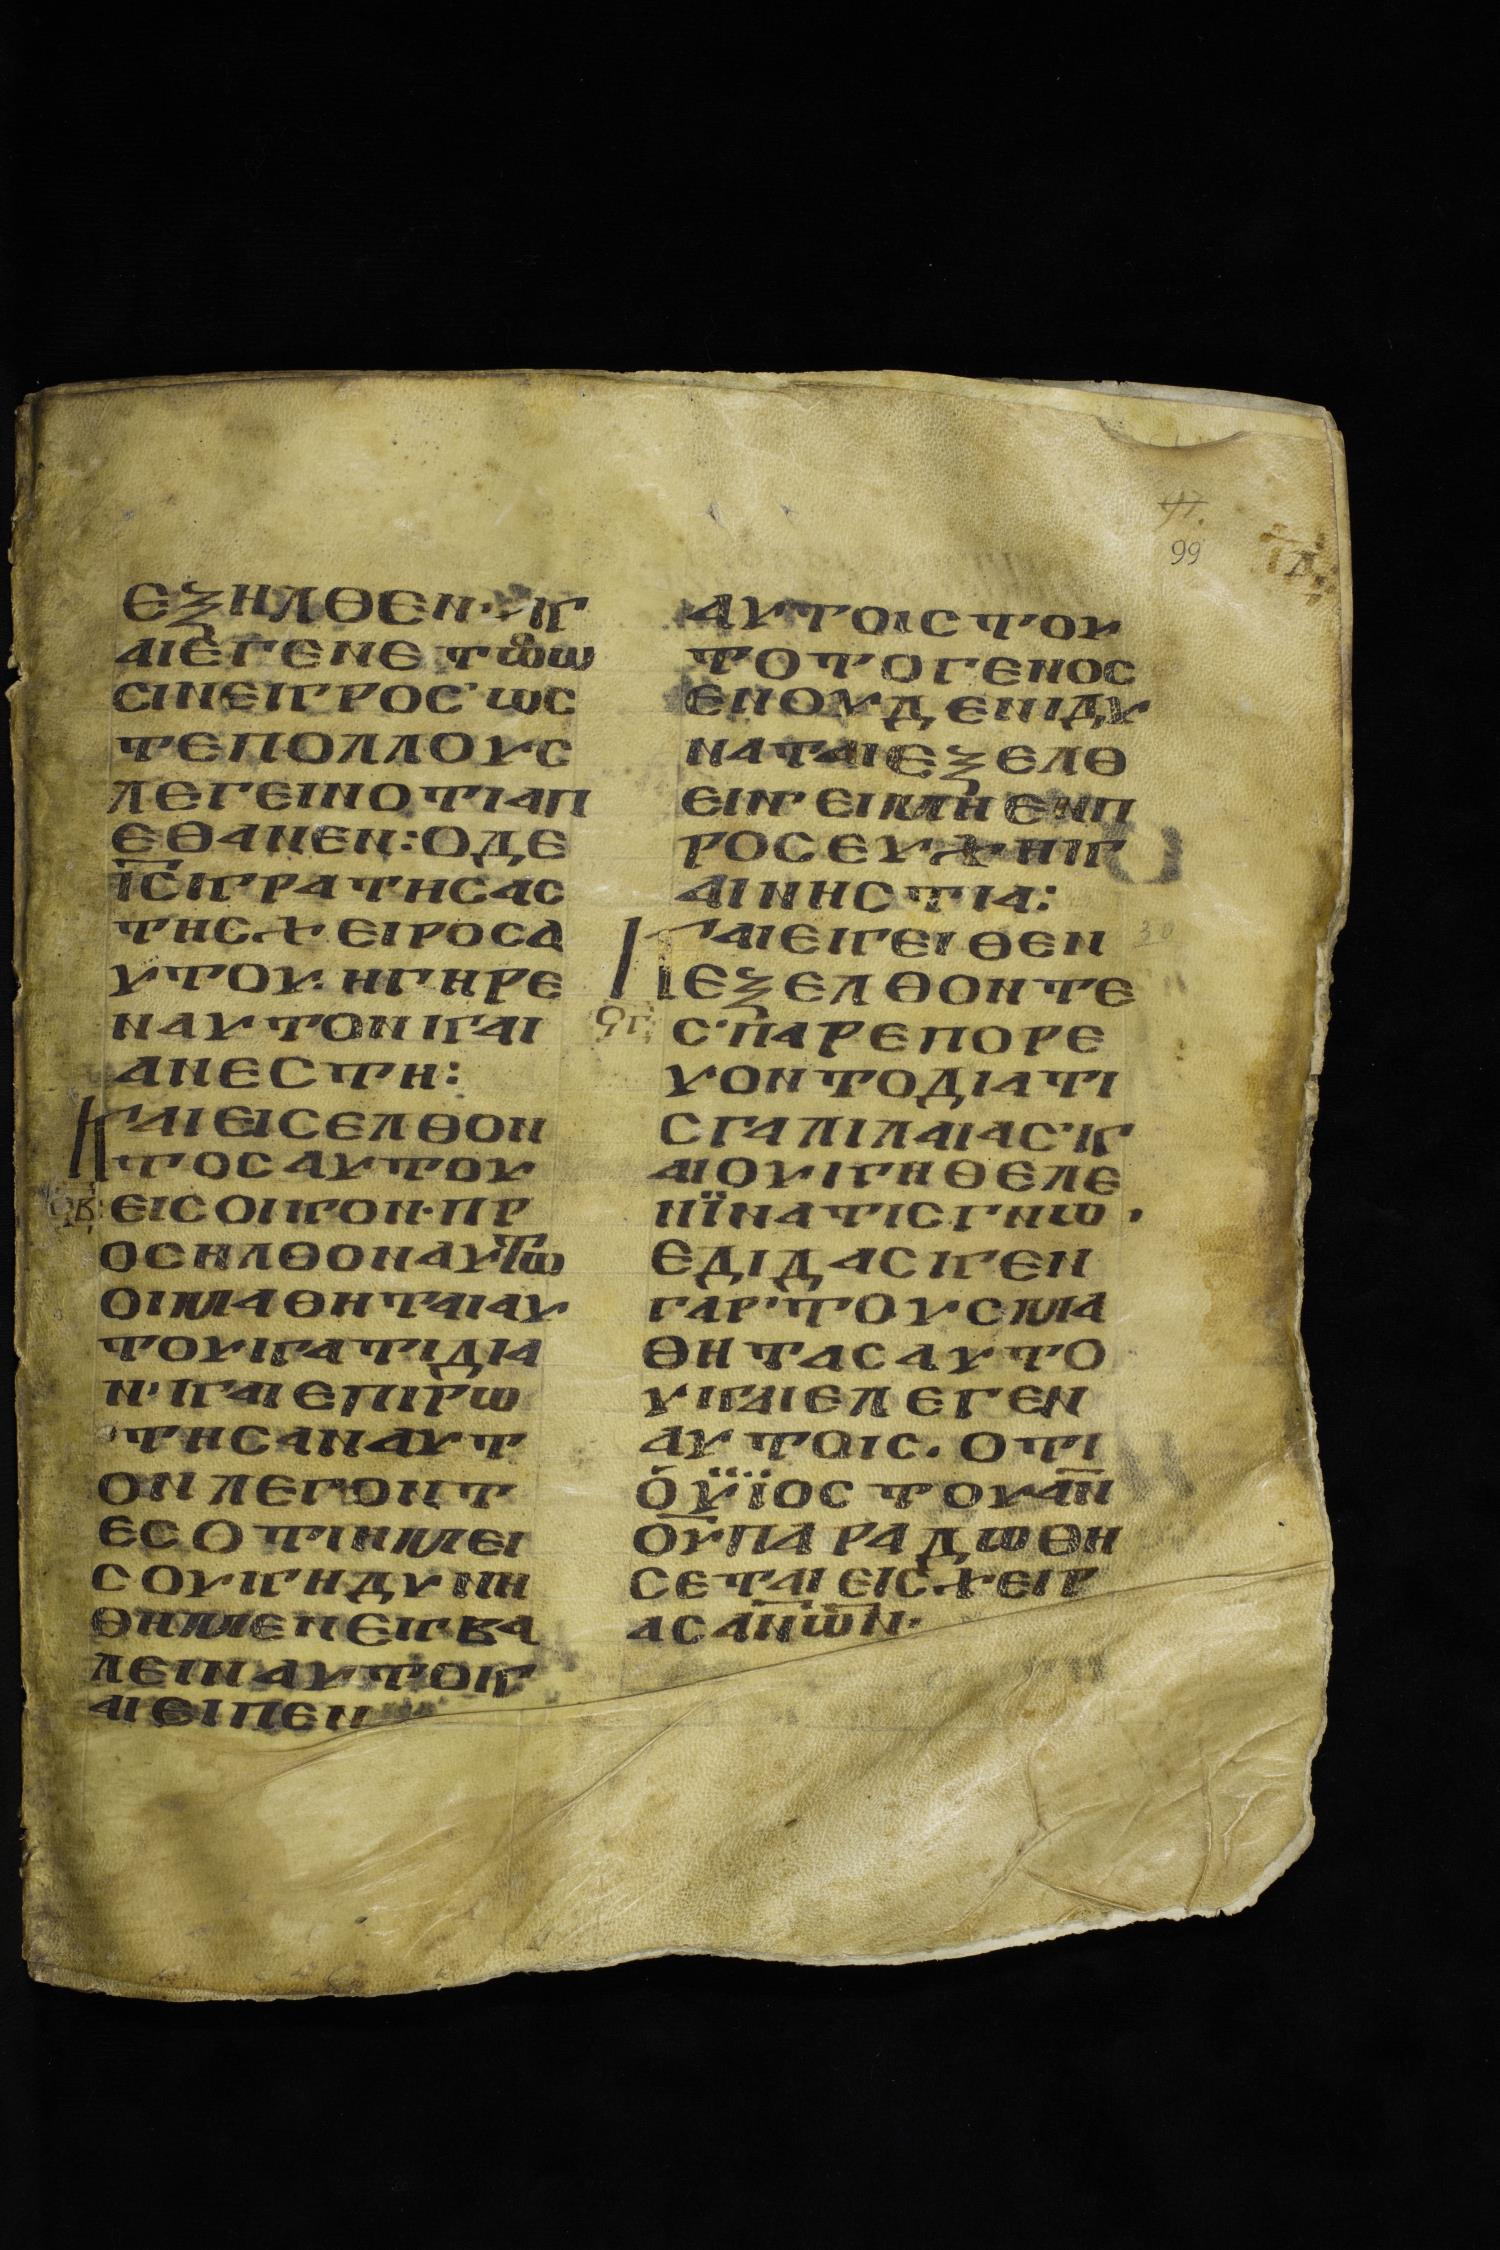 97.
99
ΕΞΗΛΘΕΝ·Κ
ΑΙΕΓΕΝΕΤΟΩ
ΣΙΝΕΚΡΟΣ·ΩΣ
ΤΕΠΟΛΛΟΥΣ
ΛΕΓΕΙΝΟΤΙΑΠ
ΕΘΑΝΕΝ:ΟΔΕ
ΙΣΚΡΑΤΗΣΑΣ
ΤΗΣΧΕΙΡΟΣΑ
ΥΤΟΥ·ΗΓΗΡΕ
ΝΑΥΤΟΝΚΑΙ
ΑΝΕΣΤΗ:
ΚΑΙΕΙΣΕΛΘΟΝ
ΤΟΣΑΥΤΟΥ
ϟΒ:
ΕΙΣΟΙΚΟΝ·ΠΡ
ΟΣΗΛΘΟΝΑΥΤΩ
ΟΙΜΑΘΗΤΑΙΑΥ
ΤΟΥΚΑΤΙΔΙΑ
Ν·ΚΑΙΕΠΙΡΩ
ΤΗΣΑΝΑΥΤ
ΟΝΛΕΓΟΝΤ
ΕΣΟΤΙΗΜΕΙ
ΣΟΥΚΗΔΥΝΗ
ΘΗΜΕΝΕΚΒΑ
ΛΕΙΝΑΥΤΟΚ
ΑΙΕΙΠΕΝ
ΑΥΤΟΙΣΤΟΥ
ΤΟΤΟΓΕΝΟΣ
ΕΝΟΥΔΕΝΙΔΥ
ΝΑΤΑΙΕΞΕΛΘ
ΕΙΝ·ΕΙΜΗΕΝΠ
ΡΟΣΕΥΧΗΚ
ΑΙΝΗΣΤΙΑ:
ΚΑΙΕΚΕΙΘΕΝ
30
ΕΞΕΛΘΟΝΤΕ
ϟΓ:
Σ·ΠΑΡΕΠΟΡΕ
ΥΟΝΤΟΔΙΑΤΙ
ΣΓΑΛΙΛΑΙΑΣ·Κ
ΑΙΟΥΚΗΘΕΛΕ
ΝΪΝΑΤΙΣΓΝΩ·
ΕΔΙΔΑΣΚΕΝ
ΓΑΡ·ΤΟΥΣΜΑ
ΘΗΤΑΣΑΥΤΟ
ΥΚΑΙΕΛΕΓΕΝ
ΑΥΤΟΙΣ·ΟΤΙ
ΟΫΪΟΣΤΟΥΑΝ
ΟΥΠΑΡΑΔΩΘΗ
ΣΕΤΑΙΕΙΣΧΕΙΡ
ΑΣΑΝΩΝ·